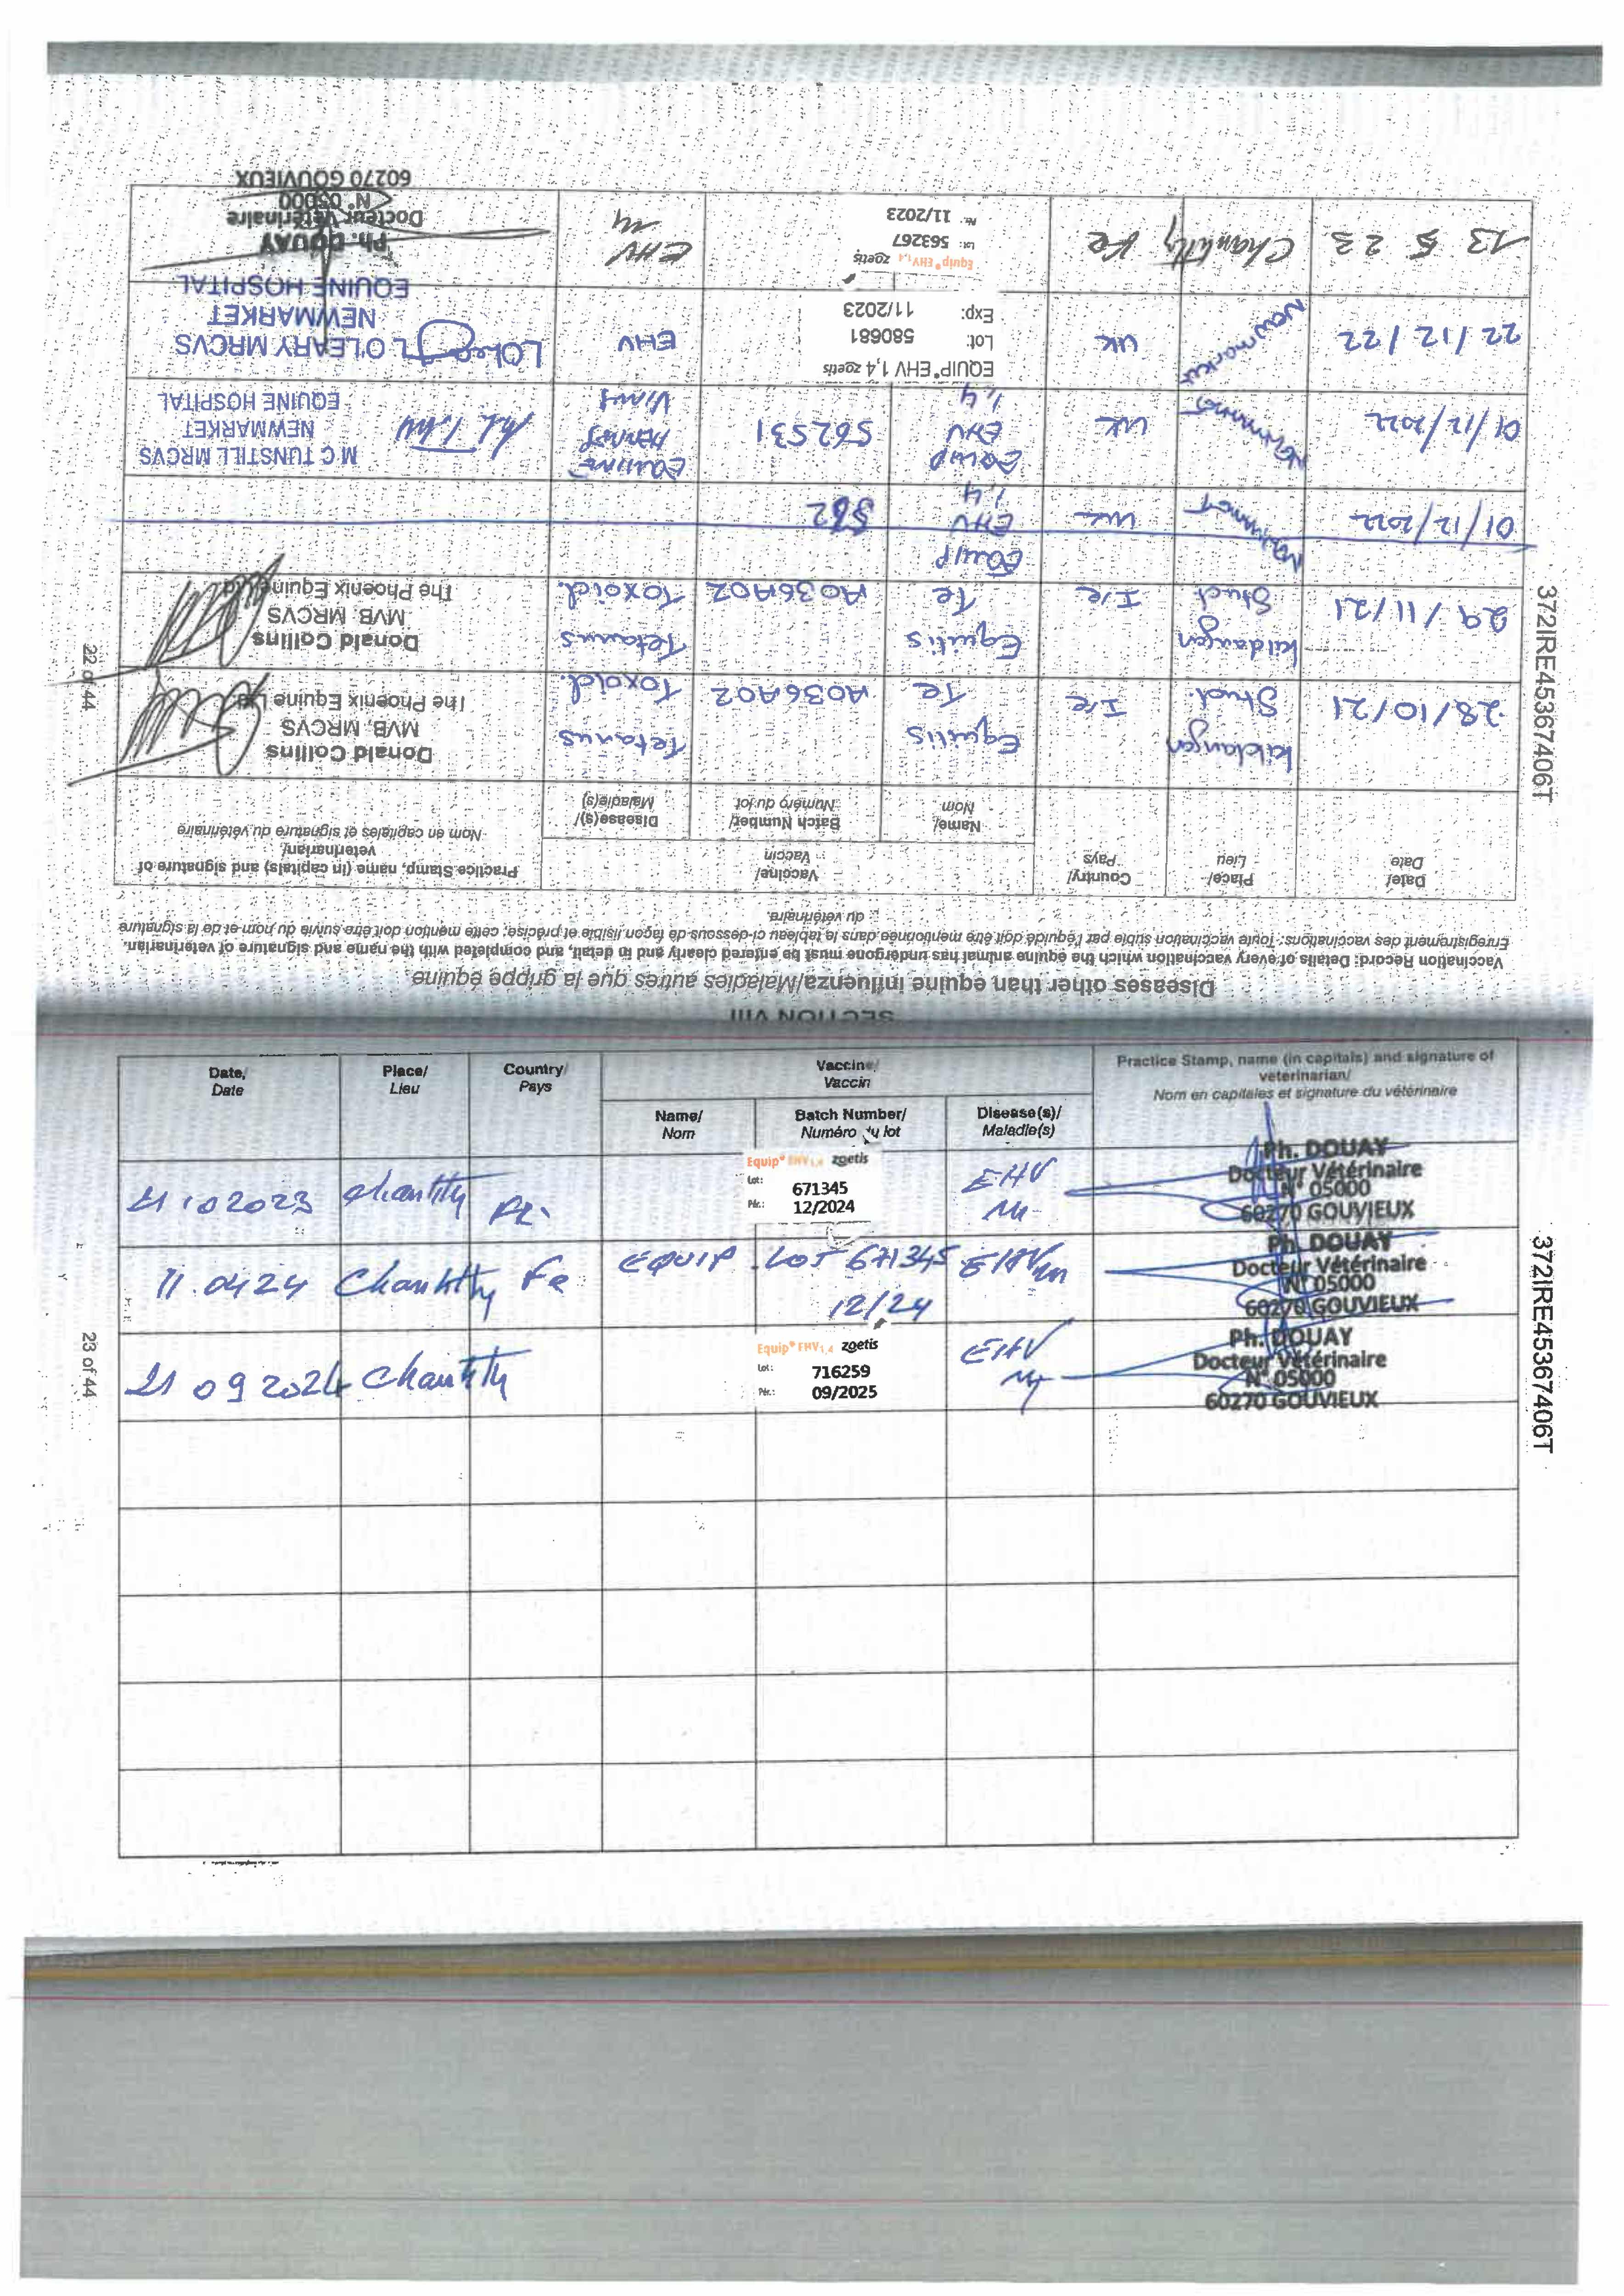 SECTION VIII
Diseases other than equine influenza/Maladies autres que la grippe équine
Vaccination Record: Details of every vaccination which the equine animal has undergone must be entered clearly and in detail, and completed with the name and signature of veterinarian.
Enregistrement des vaccinations: Toute vaccination subie par l'équidé doit être mentionnée dans le tableau ci-dessous de façon lisible et précise; cette mention doit être suivie du nom et de la signature
du vétérinaire.
Date/
Date
Place/
Lieu
Country/
Pays
Vaccine/
Vaccin
Practice Stamp, name (in capitals) and signature of
veterinarian/
Nom en capitales et signature du vétérinaire
Name/
Nom
Batch Number/
Numéro du lot
Disease(s)/
Maladie(s)
28/10/21
Kildangan
Stud.
Ire
Equilis
Te
A036A02
Tetanus
Toxoid.
Donald Collins
MVB, MRCVS
The Phoenix Equine
29/11/21
Kildangan
Stud
Ire
Equilis
Te
A036A02
Tetanus
Toxoid.
Donald Collins
MVB, MRCVS
The Phoenix Equine
01/12/2022
UK
Equip
EHV
1,4
562
01/12/2022
Newmarket
UK
Equip
EHV
1,4
562531
Equine
Herpes
Virus
M C TUNSTILL MRCVS
NEWMARKET
EQUINE HOSPITAL
22/12/22
Newmarket
UK
EQUIP® EHV 1,4 zoetis
Lot: 580681
Exp: 11/2023
EHV
L O'LEARY MRCVS
NEWMARKET
EQUINE HOSPITAL
13 5 23
Chantilly
Fe
Equip® EHV1,4 zoetis
Lot: 563267
Pér.: 11/2023
EHV
Ph. DOUAY
Docteur Vétérinaire
N° 05000
60270 GOUVIEUX
22 of 44
372IRE45367406T
Date/
Date
Place/
Lieu
Country/
Pays
Vaccine/
Vaccin
Practice Stamp, name (in capitals) and signature of
veterinarian/
Nom en capitales et signature du vétérinaire
Name/
Nom
Batch Number/
Numéro du lot
Disease(s)/
Maladie(s)
21 10 2023
Chantilly
Equip® EHV1,4 zoetis
Lot: 671345
Pér.: 12/2024
EHV
Ph. DOUAY
Docteur Vétérinaire
N° 05000
60270 GOUVIEUX
11.04 24
Chantilly
Fe
EQUIP
LOT 671345
12/24
EHV
Ph. DOUAY
Docteur Vétérinaire
N° 05000
60270 GOUVIEUX
21 09 2024
Chantilly
Equip® EHV1,4 zoetis
Lot: 716259
Pér.: 09/2025
EHV
Ph. DOUAY
Docteur Vétérinaire
N° 05000
60270 GOUVIEUX
23 of 44
372IRE45367406T